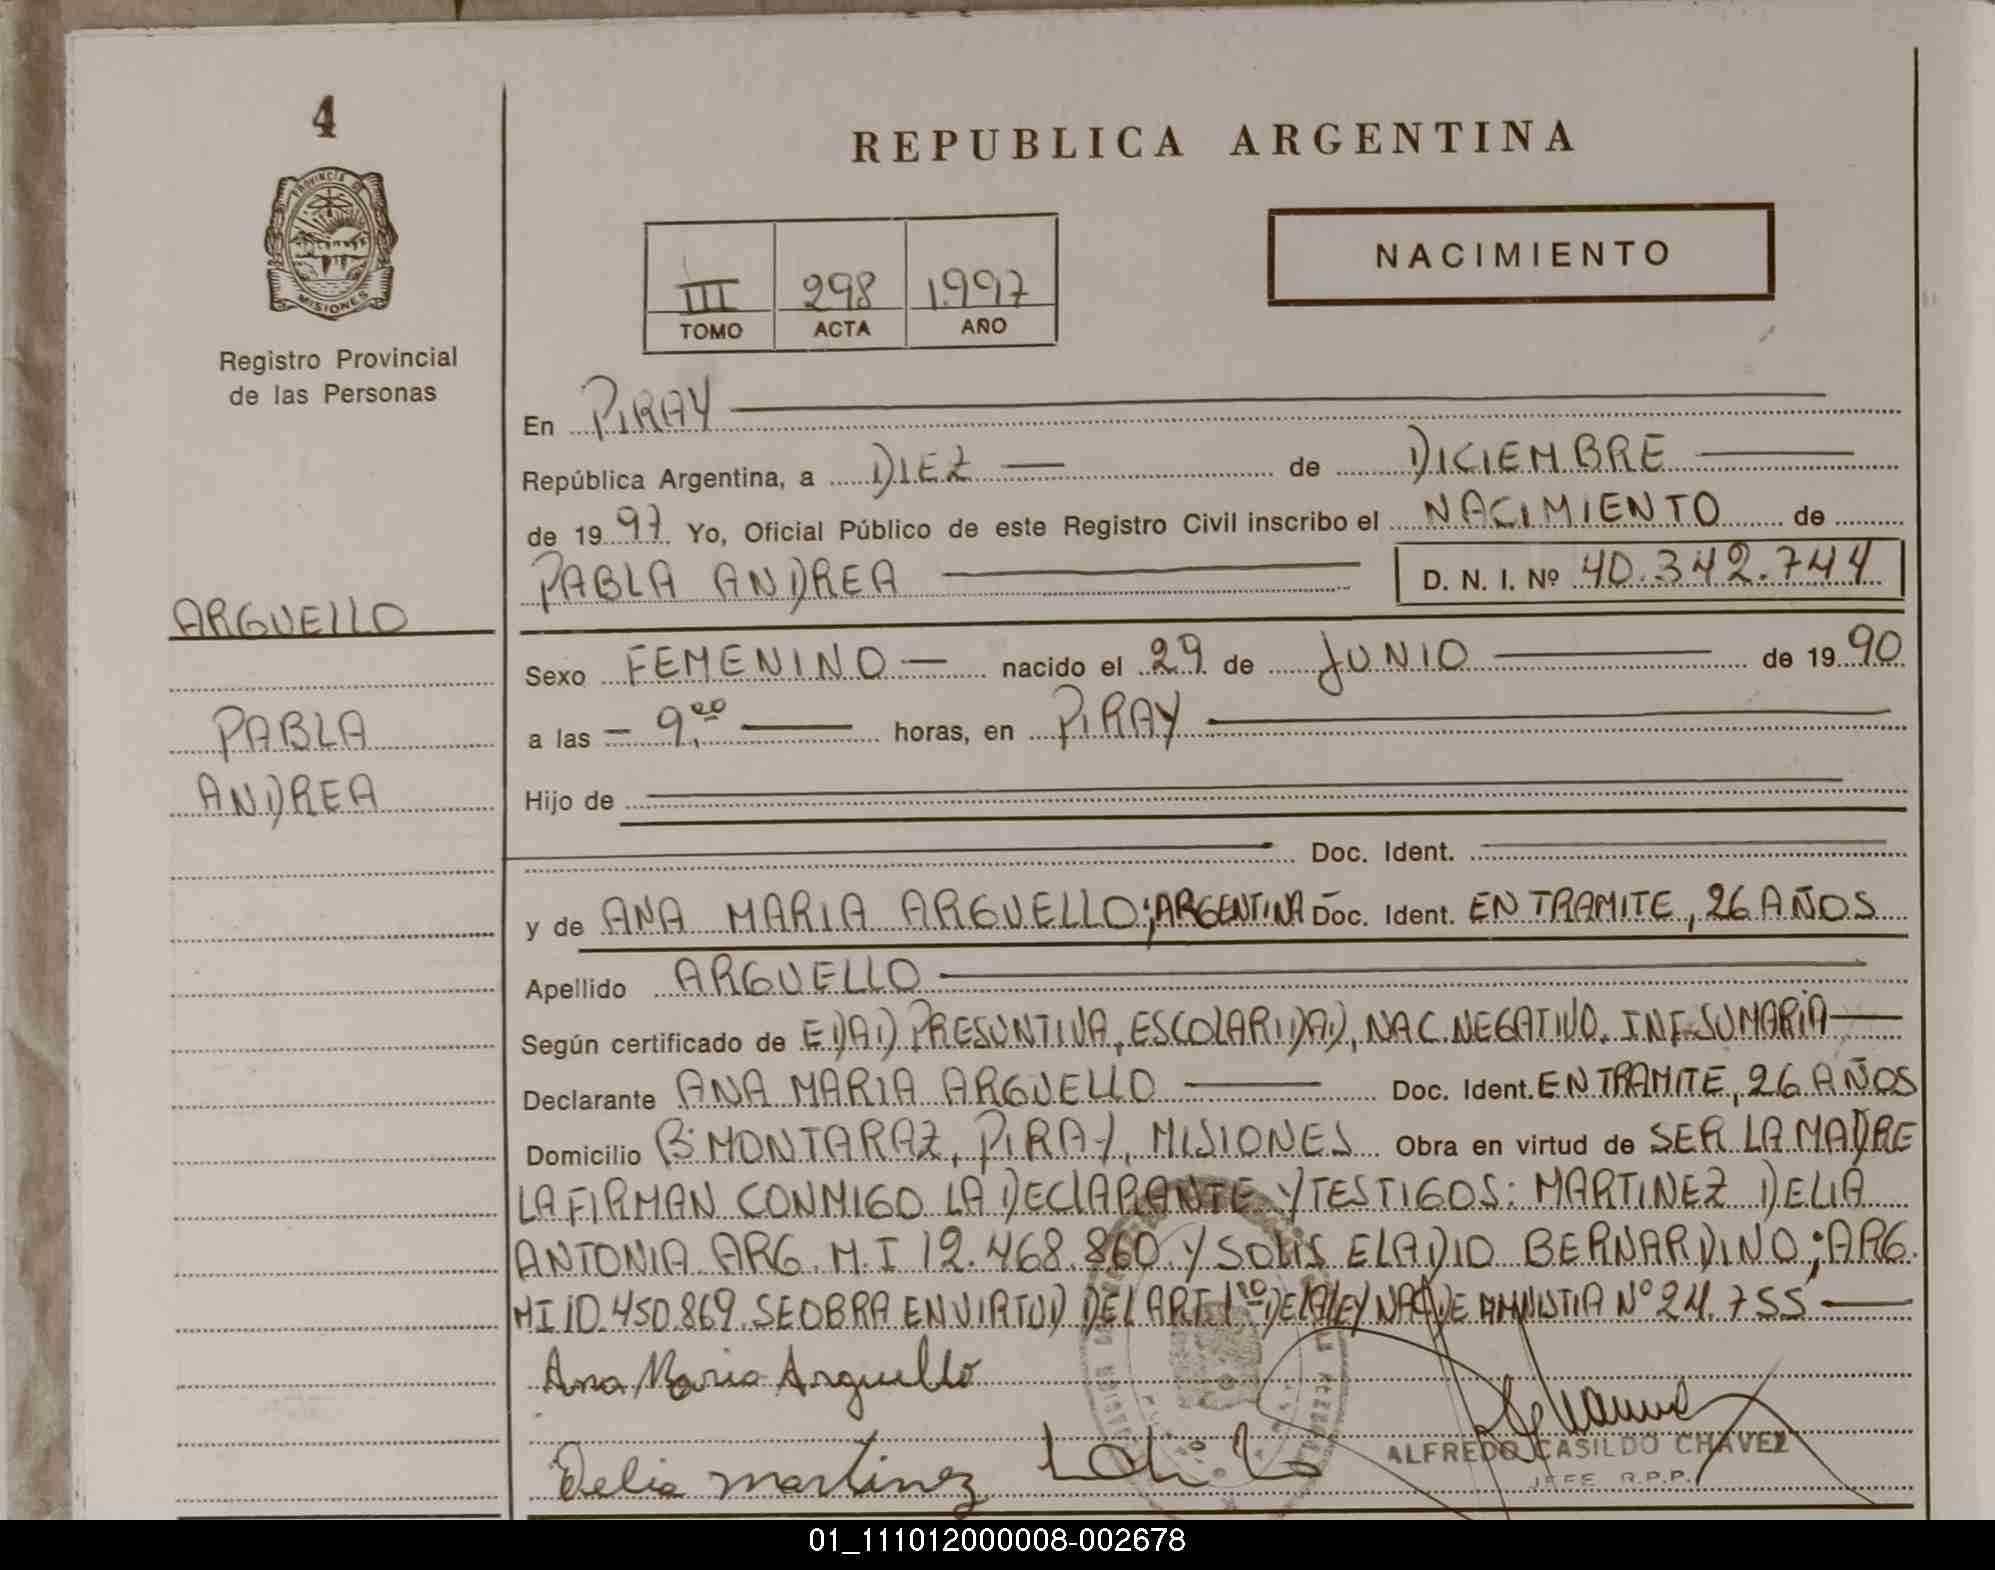 4
PROVINCIA DE
MISIONES
Registro Provincial
de las Personas
ARGUELLO
PABLA
ANDREA
REPUBLICA ARGENTINA
III 298 1997
TOMO ACTA AÑO
NACIMIENTO
En PIRAY
República Argentina, a DIEZ de DICIEMBRE
de 1997 Yo, Oficial Público de este Registro Civil inscribo el NACIMIENTO de
PABLA ANDREA D. N. I. Nº 40.342.744
Sexo FEMENINO nacido el 29 de JUNIO de 1990
a las 9,00 horas, en PIRAY
Hijo de
Doc. Ident.
y de ANA MARIA ARGUELLO; ARGENTINA Doc. Ident. EN TRAMITE, 26 AÑOS
Apellido ARGUELLO
Según certificado de EDAD PRESUNTIVA, ESCOLARIDAD, NAC. NEGATIVO. INF. SUMARIA
Declarante ANA MARIA ARGUELLO Doc. Ident. EN TRAMITE, 26 AÑOS
Domicilio Bº MONTARAZ, PIRAY, MISIONES Obra en virtud de SER LA MADRE
LA FIRMAN CONMIGO LA DECLARANTE Y TESTIGOS: MARTINEZ DELIA
ANTONIA ARG. M.I 12.468.860 Y SOLIS ELADIO BERNARDINO; ARG.
MI 10.450.869. SE OBRA EN VIRTUD DEL ART. 1ro DE LA LEY NAC DE AMNISTIA Nº 24.755
Ana Maria Arguello
Delia martinez
ALFREDO CASILDO CHAVEZ
JEFE R.P.P.
01_111012000008-002678